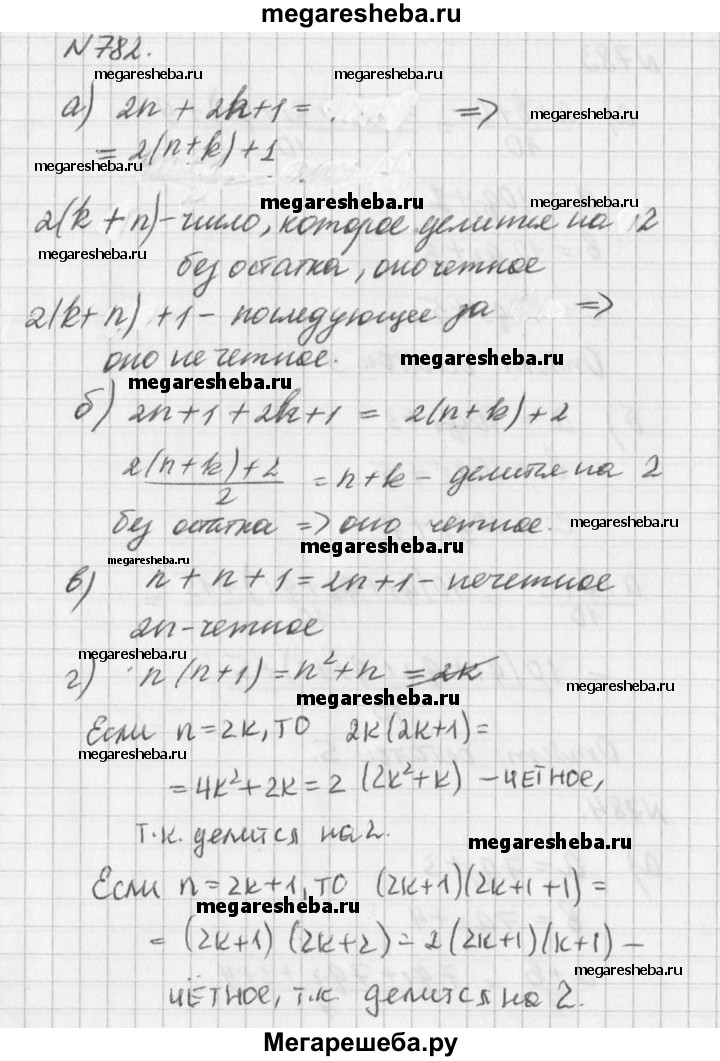 megaresheba.ru
N782.
megaresheba.ru megaresheba.ru
а) 2n + 2k+1 = . =>
megaresheba.ru
= 2(n+k)+1
megaresheba.ru
megaresheba.ru megaresheba.ru
2(k+n)-число, которое делится на 2
без остатка, оно четное
2(k+n)+1 - последующее за =>
оно нечетное.
megaresheba.ru
megaresheba.ru
б) 2n+1+2k+1 = 2(n+k)+2
2(n+k)+2
/2 = n+k - делится на 2
без остатка => оно четное.
megaresheba.ru
megaresheba.ru
megaresheba.ru
в) n+n+1=2n+1 - нечетное
2n-четное
megaresheba.ru
г) n(n+1)=n²+n =2k
megaresheba.ru
megaresheba.ru
Если n=2k, ТО 2k(2k+1)=
megaresheba.ru
=4k²+2k=2(2k²+k) - ЧЁТНОЕ,
т.к. делится на 2.
megaresheba.ru
Если n=2k+1, ТО (2k+1)(2k+1+1)=
megaresheba.ru
= (2k+1)(2k+2)=2(2k+1)(k+1) -
megaresheba.ru
ЧЁТНОЕ, т.к. делится на 2.
Мегарешеба.ру